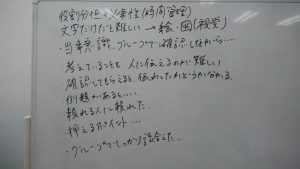 役割分担の必要性(時間管理)
文字だけだと難しい → 絵・図(視覚)
・当事者 認識、グループで確認しながら・・・・
考えていることを人に伝えるのが難しい
確認してもらえると、伝わったかどうか分かる。
・例題があると・・・・
頼れる人に頼れた。
・押えるポイント・・・
・グループでしっかり話合えた。